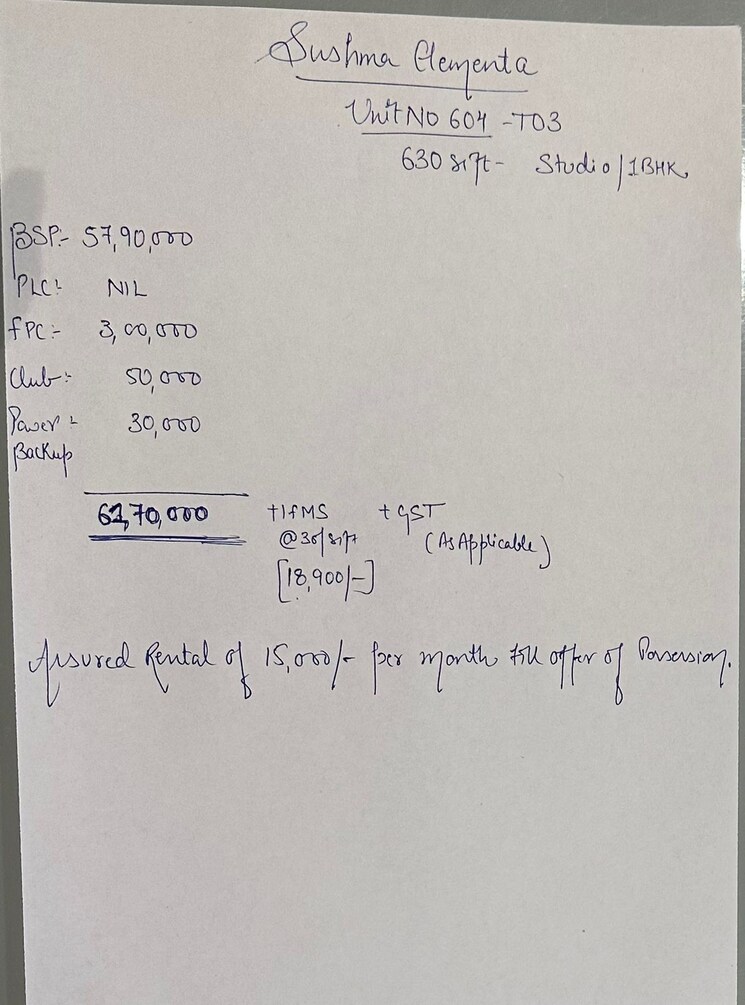 Sushma Elementa
Unit No 604 - T03
630 sqft - Studio/1BHK
BSP:- 57,90,000
PLC:- NIL
FPC:- 3,00,000
Club:- 50,000
Power :- 30,000
Backup
61,70,000 + IFMS + GST
@30/sqft (As Applicable)
[18,900/-]
Assured Rental of 15,000/- per month till offer of Possession.